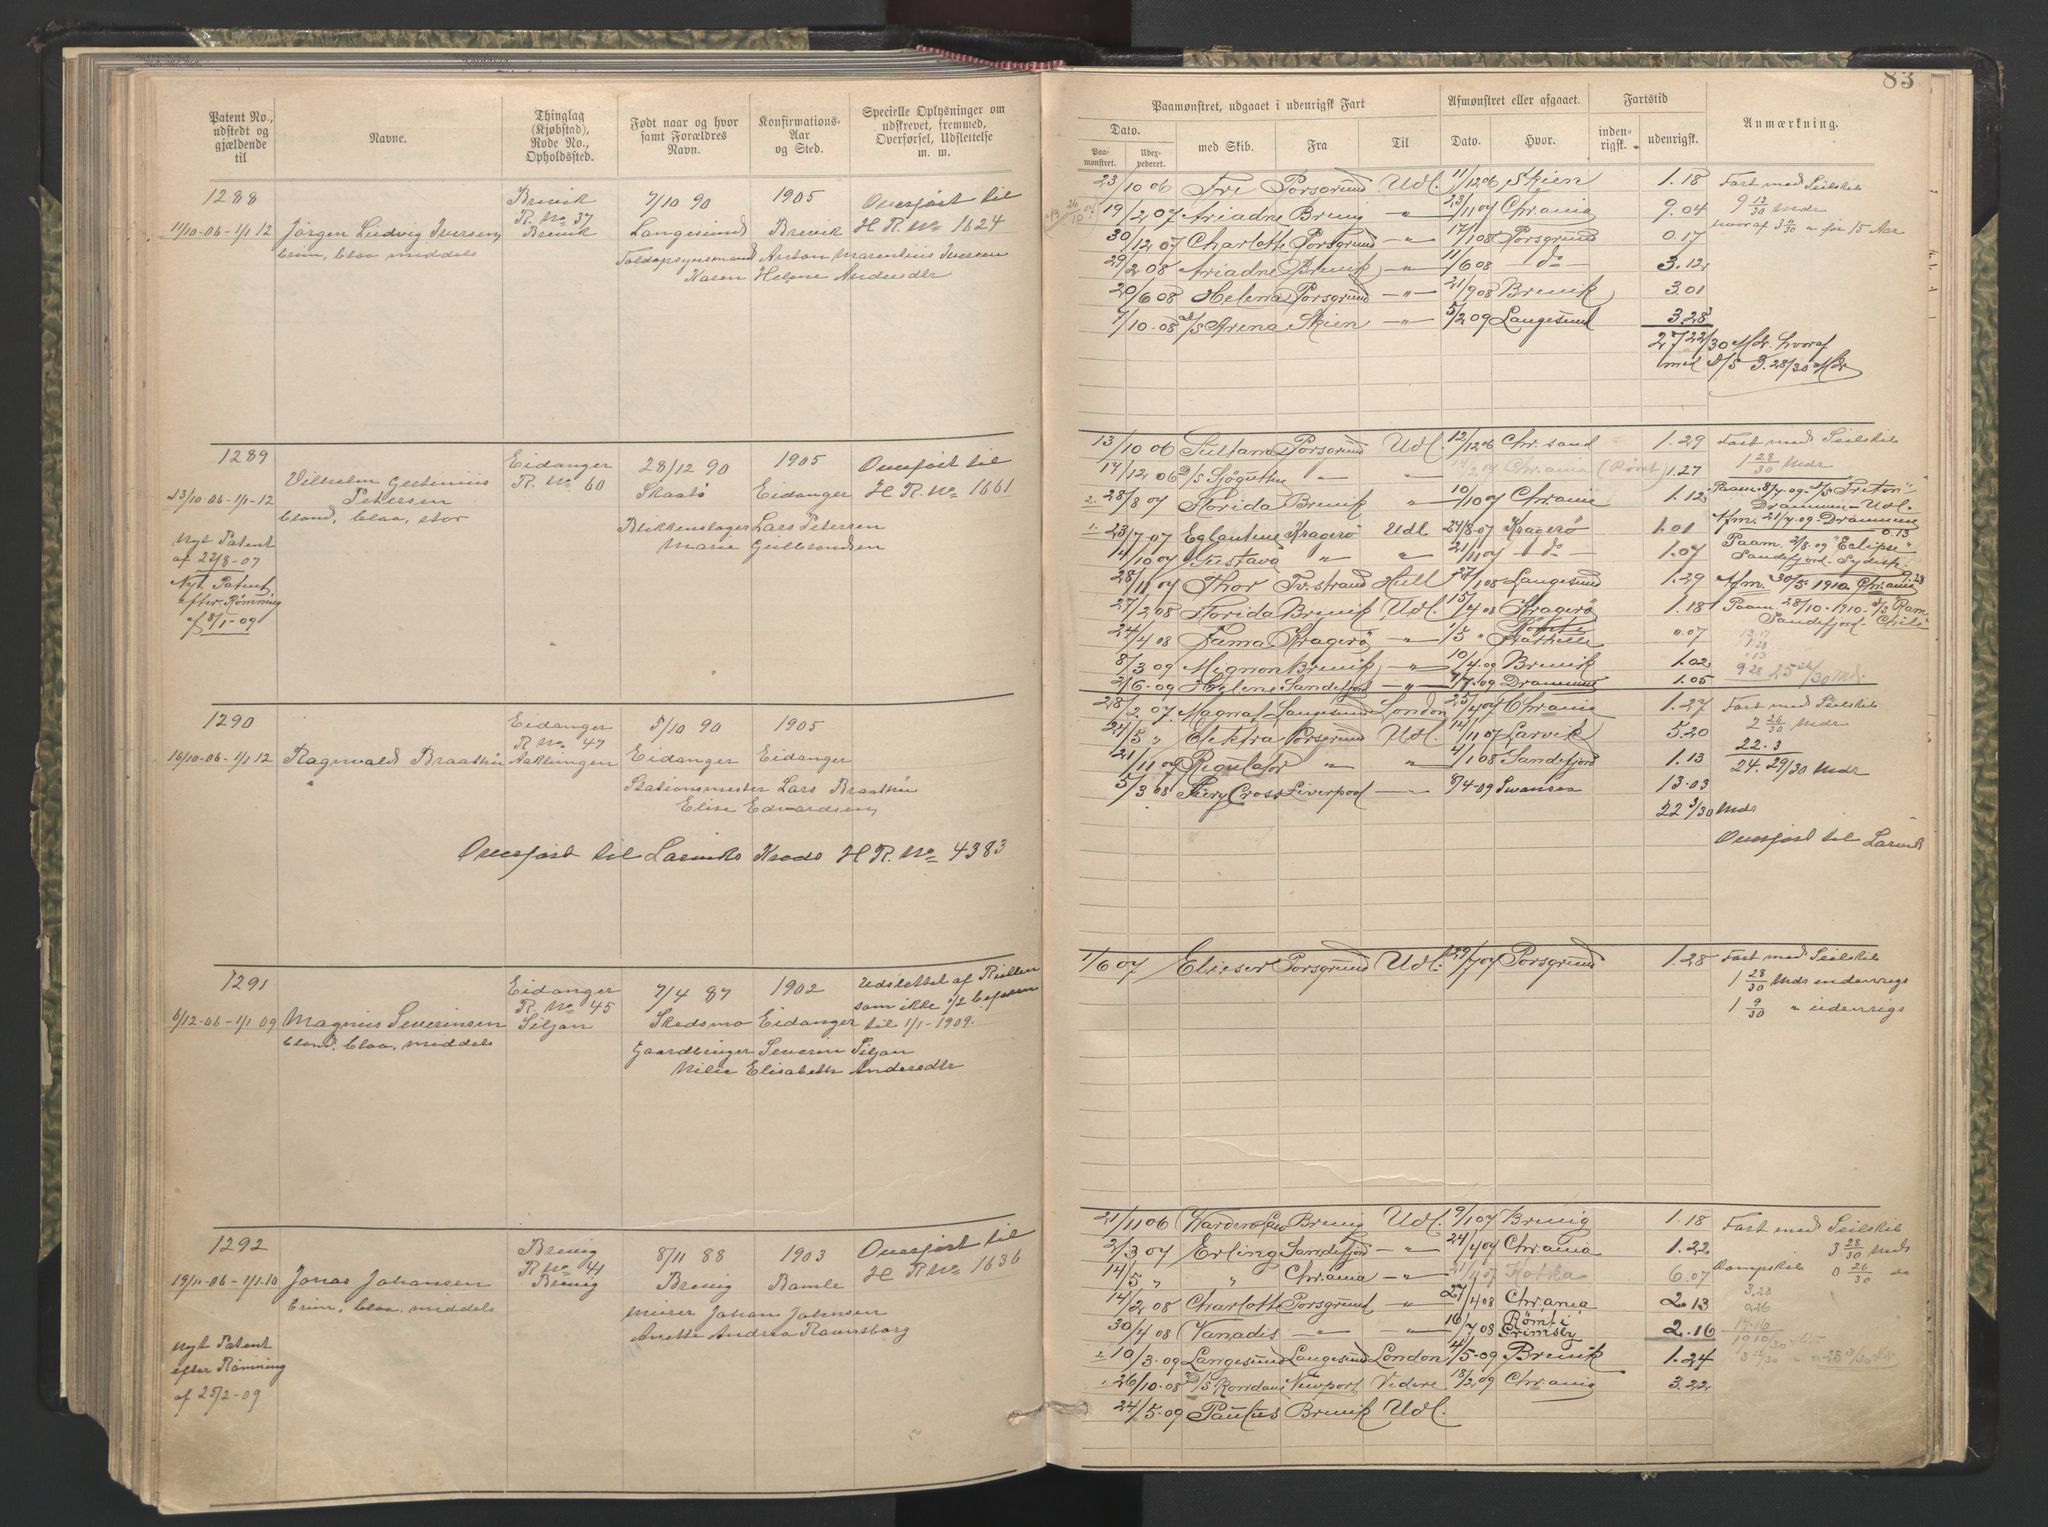 83
Patent No., udstedt og gjældende til
Navne.
Thinglag (Kjøbstad), Rode No., Opholdssted.
Født naar og hvor samt Forældres Navn.
Konfirmations-Aar og Sted.
Specielle Oplysninger om udskrevet, fremmed, Overførsel, Udslettelse m. m.
Paamønstret, udgaaet i udenrigsk Fart
Afmønstret eller afgaaet.
Fartstid
Anmærkning.
Dato.
Paamønstret.
Udexpederet.
med Skib.
Fra
Til
Dato.
Hvor.
indenrigsk.
udenrigsk.
1288
11/10-06-1/1 12
Jørgen Ludvig Iversen
brun, blaa middels
Brevik
R. No 37
Brevik
7/10 90
Langesund
1905
Brevik
Overført til
H R. No 1624
Toldopsynsmand Anton Marentius Iversen
Karen Helene Andersdtr
23/10 06 Fri Porsgrund Udl. 11/12 06 Skien 1.18 Fart med Seilskib
19/2 07 Ariadne Brevig " 23/11 07 Chr.ania 9.04 9 12/30 Mdr
30/12 07 Charlotte Porsgrund " 17/1 08 Porsgrund 0.17
29/2 08 Ariadne Brevik " 11/6 08 do 3.12
20/6 08 Helena Porsgrund " 21/9 08 Brevik 3.01
7/10-08 d/s Arena Skien " 5/2 09 Langesund 3.28
27 22/30 Mdr. hvoraf
med d/s 3. 28/30 Mdr
1289
13/10-06-1/1-12
Vilhelm Gertinius
Petersen
blond, blaa, stor
Nyt Patent
af 22/8-07
Nyt Patent
efter Rømning
af 8/1-09
Eidanger
R. No 60
28/12 90
Skaatø
1905
Eidanger
Overført til
H R. No 1661
Blikkenslager Lars Petersen
Marie Gulbrandsen
13/10 06 Sultana Porsgrund Udl. 12/12 06 Chr.sand 1.29 Fart med Seilskib
17/12 06 D/s Sjøgutten " " Chr.ania (Rømt) 1.27 1 28/30 Mdr
2. 28/8 07 Florida Brevik " 10/10 07 Chr.ania 1.12 Paam. 8/7-09 d/s "Triton"
Drammen-Udl.
1. 23/7-07 Eglantine Kragerø Udl 24/8-07 Kragerø 1.01 Afm. 21/7-09-Drammen 0.13
14/10 07 Gustava " " 21/11 07 do 1.07 Paam. 2/8-09 "Eclipse"
Sandefjord-Sydish.
28/11 07 Thor Tv.strand Hull 27/1 08 Langesund 1.29 Afm. 30/5 1910 Chr.ania 9.28
27/2 08 Florida Brevik Udl. 15/4 08 Kragerø 1.18 Paam. 28/10-1910-d/s "Ram"
Sandefjord "Chile"
24/4 08 Fama Kragerø " 1/5 " Rømte 0.07
8/3 09 Mignon Brevik " 10/4-09 Brevik 1.02
2/6-09 Helene Sandefjord " 7/7-09 Drammen 1.05
1290
16/10-06-1/1 12
Ragnvald Braathen
Eidanger
R No. 47
Aaklungen
5/10 90
Eidanger
1905
Eidanger
Stationsmester Lars Braathen
Elise Edvardsen
Overført til Larviks Kreds H R. No 4383
28/2 07. Magnat Langesund London 25/4 07 Chr.ania 1.27 Fart med Seilskib
27/5 " Elektra Porsgrund Udl 14/11 07 Larvik 5.20 2 26/30 Mdr
21/11 07 Regulator " " 4/1 08 Sandefjord 1.13 22.3
24. 29/30 Mdr
5/3 08 Fiery Cross Liverpool " 8/4-09 Swansea 13.03
22 3/30 Mdr
Overført til Larvik
1291
6/12-06-1/1 09
Magnus Severinsen
blond. blaa, middels
Eidanger
R. No 45
Siljan
7/4 87
Skedsmo
1902
Eidanger
Udslettet af Rullen
som ikke 1/2 befaren
til 1/1-1909.
Gaardbruger Severin Siljan
Nilie Elisabeth Andersdtr
1/6 07 Elieser Porsgrund Udl. 29/7 07 Porsgrund 1.28 Fart med Seilskib
1 28/30 Mdr indenrigs
1 9/30 " udenrigs
1292
19/11-06-1/1.10
Jonas Johansen
brun, blaa. middels
Nyt Patent
efter Rømning
af 25/2-09
Brevig
R No 41
Brevig
8/11 88
Brevig
1903
Bamle
Overført til
H R No 1636
Murer Johan Johnsen
Anette Andrea Ravnsborg
21/11 06 Brevig Udl. 9/1 07 Brevig 1.18 Fart med Seilskib
2/3 07 Erling Sandefjord " 24/4 07 Chr.ania 1.22 3 28/30 Mdr
14/5 " " Chr.ania " 21/11 07 Kotka 6.07 Dampskib 0 26/30 do
14/2 08 Charlotte Porsgrund " 27/4 08 Chr.ania 2.13
30/4 08 Vanadis " " 16/7 08 Rømt i Grimsby 2.16
2. 10/3-09 Langesund Langesund London 4/5-09 Brevik 1.24
1. 26/10-08 D/s Rondane Newport Videre 18/2 09 Chr.ania 3.22
24/5-09 Paulus Brevik Udl.